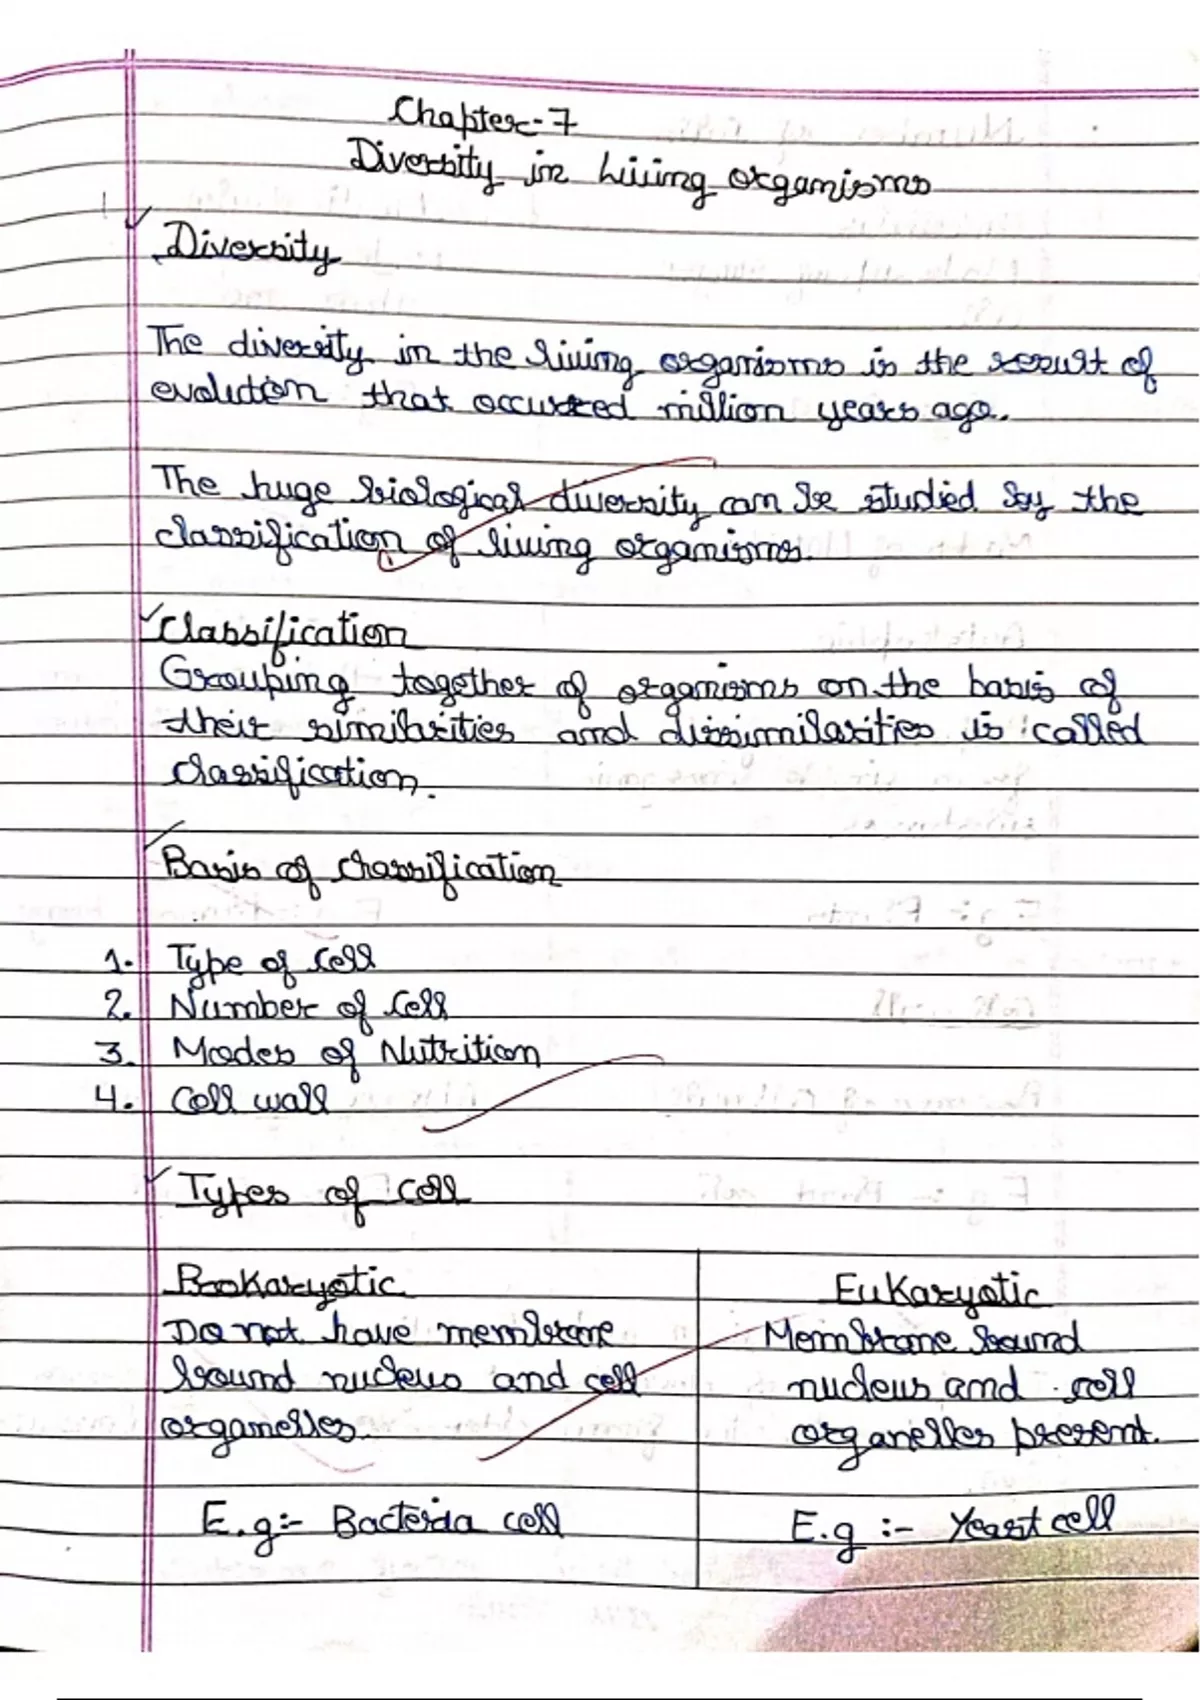 Chapter-7
Diversity in Living organisms
Diversity
The diversity in the living organisms is the result of
evolution that occurred million years ago.
The huge biological diversity can be studied by the
classification of living organisms.
Classification
Grouping together of organisms on the basis of
their similarities and dissimilarities is called
classification.
Basis of classification
1. Type of cell
2. Number of cell
3. Modes of Nutrition
4. Cell wall
Types of cell
Prokaryotic
Do not have membrane
bound nucleus and cell
organelles.
E.g:- Bacteria cell
Eukaryotic
Membrane bound
nucleus and cell
organelles present.
E.g :- Yeast cell